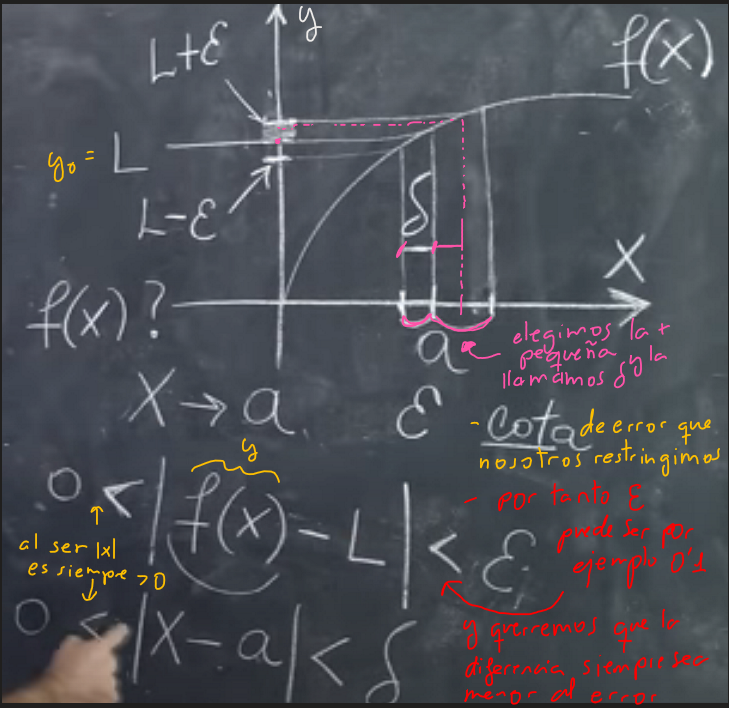 y
L+ε
f(x)
y₀ = L
L-ε
δ
X
f(x)?
a
elegimos la +
pequeña
y la
llamamos δ
X → a
ε
- cota de error que
nosotros restringimos
y
0 < |f(x) - L| < ε
- por tanto ε
puede ser por
ejemplo 0'1
al ser |x|
es siempre >0
0 < |x - a| < δ
y querremos que la
diferencia siempre sea
menor al error